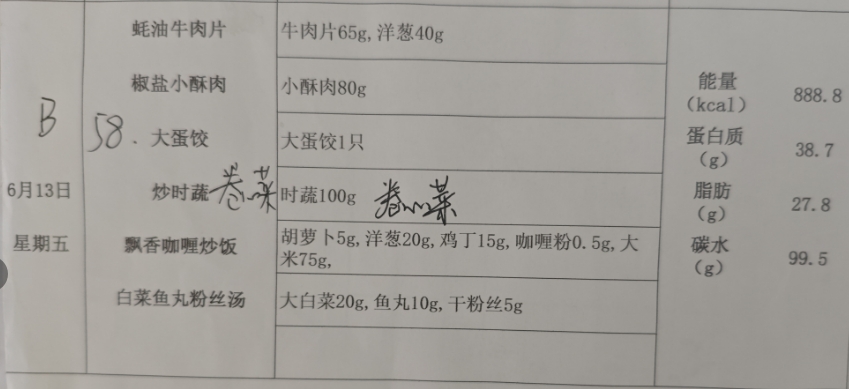 蚝油牛肉片 牛肉片65g,洋葱40g
椒盐小酥肉 小酥肉80g
能量
(kcal) 888.8
B 58. 大蛋饺 大蛋饺1只
蛋白质
(g) 38.7
6月13日 炒时蔬 卷心菜 时蔬100g 卷心菜
脂肪
(g) 27.8
星期五 飘香咖喱炒饭 胡萝卜5g,洋葱20g,鸡丁15g,咖喱粉0.5g,大
米75g,
碳水
(g) 99.5
白菜鱼丸粉丝汤 大白菜20g,鱼丸10g,干粉丝5g